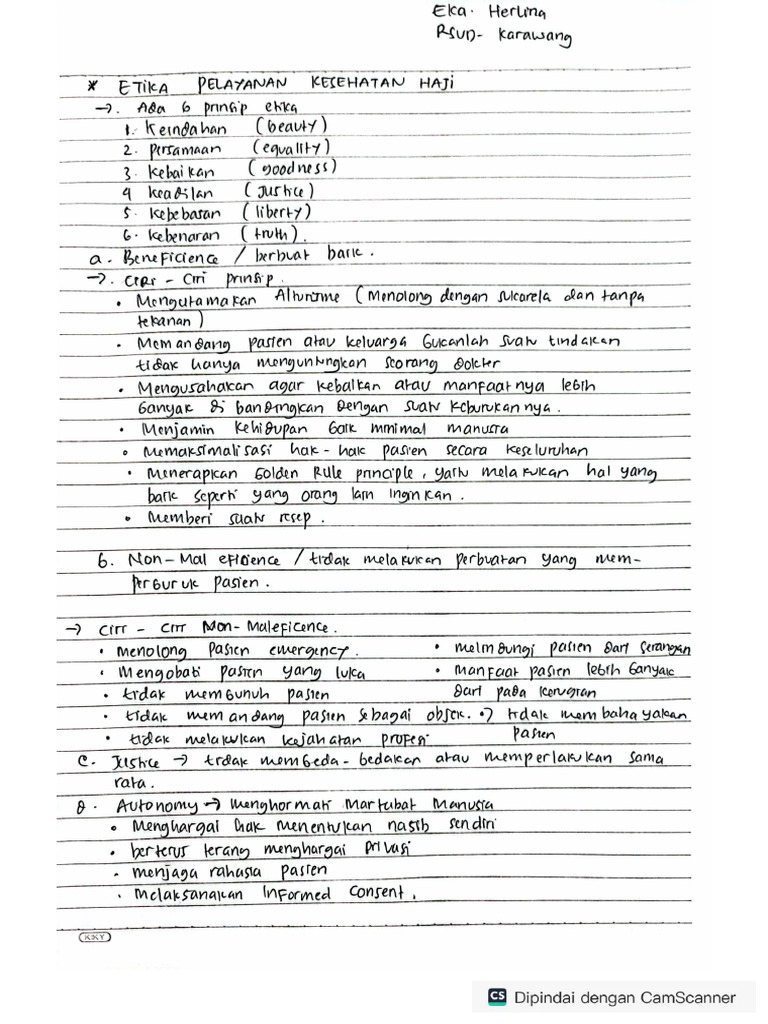 Eka. Herlina
RSUD- Karawang
* ETIKA PELAYANAN KESEHATAN HAJI
→. Ada 6 prinsip etika
1. Keindahan (beauty)
2. persamaan (equality)
3. kebaikan (goodness)
4 keadilan (Justice)
5. kebebasan (liberty)
6. kebenaran (truth).
a. Beneficience / berbuat baik.
→. CIRI - Ciri prinsip.
• Mengutamakan Alturisme (Menolong dengan sukarela dan tanpa
tekanan)
• Memandang pasien atau keluarga bukanlah suatu tindakan
tidak hanya menguntungkan seorang dokter
• Mengusahakan agar kebaikan atau manfaatnya lebih
banyak di bandingkan dengan suatu keburukannya.
• Menjamin kehidupan baik minimal manusia
• Memaksimalisasi hak-hak pasien secara keseluruhan
• Menerapkan Golden Rule principle, yaitu melakukan hal yang
baik seperti yang orang lain inginkan.
• Memberi suatu resep.
b. Non-Mal eficience / tidak melakukan perbuatan yang mem-
perburuk pasien.
→ Ciri - ciri Non-Maleficence.
• menolong pasien emergency. • melindungi pasien dari serangan
• Mengobati pasien yang luka • Manfaat pasien lebih banyak
• tidak membunuh pasien dari pada kerugian
• tidak memandang pasien sebagai objek. •) tidak membahayakan
• tidak melakukan kejahatan profesi pasien
C. Justice → tidak membeda-bedakan atau memperlakukan sama
rata.
D. Autonomy → Menghormati Martabat Manusia
• Menghargai hak menentukan nasib sendiri
• berterus terang menghargai privasi
• menjaga rahasia pasien
• Melaksanakan Informed Consent.
KKY
CS Dipindai dengan CamScanner